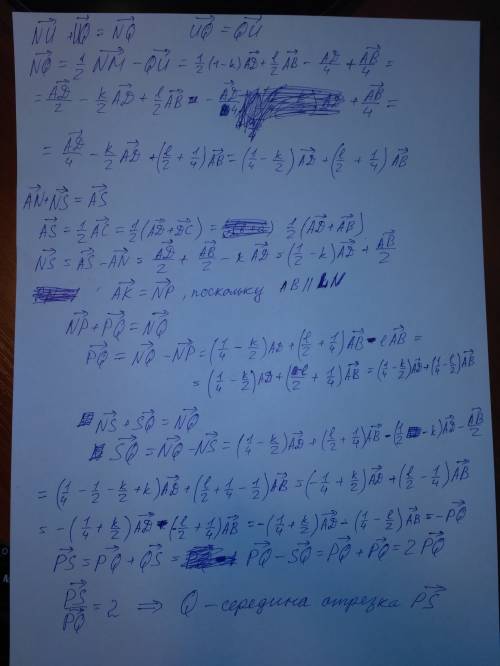 NU + UQ = NQ UQ = QU
NQ = 1/2 NM - QU = 1/2(1-k)AD + l/2 AB - AD/4 + AB/4 =
= AD/2 - k/2 AD + l/2 AB - AD/4 + AB/4 =
= AD/4 - k/2 AD + (l/2 + 1/4)AB = (1/4 - k/2)AD + (l/2 + 1/4)AB
AN + NS = AS
AS = 1/2 AC = 1/2(AD + DC) = 1/2(AD + AB)
NS = AS - AN = AD/2 + AB/2 - kAD = (1/2 - k)AD + AB/2
AK = NP, поскольку AB || LN
NP + PQ = NQ
PQ = NQ - NP = (1/4 - k/2)AD + (l/2 + 1/4)AB - lAB =
= (1/4 - k/2)AD + (-l/2 + 1/4)AB = (1/4 - k/2)AD + (1/4 - l/2)AB
NS + SQ = NQ
SQ = NQ - NS = (1/4 - k/2)AD + (l/2 + 1/4)AB - (1/2 - k)AD - AB/2
= (1/4 - 1/2 - k/2 + k)AD + (l/2 + 1/4 - 1/2)AB = (-1/4 + k/2)AD + (l/2 - 1/4)AB
= -(1/4 + k/2)AD - (-l/2 + 1/4)AB = -(1/4 + k/2)AD - (1/4 - l/2)AB = -PQ
PS = PQ + QS = PQ - SQ = PQ + PQ = 2PQ
PS/PQ = 2 ⇒ Q - середина отрезка PS